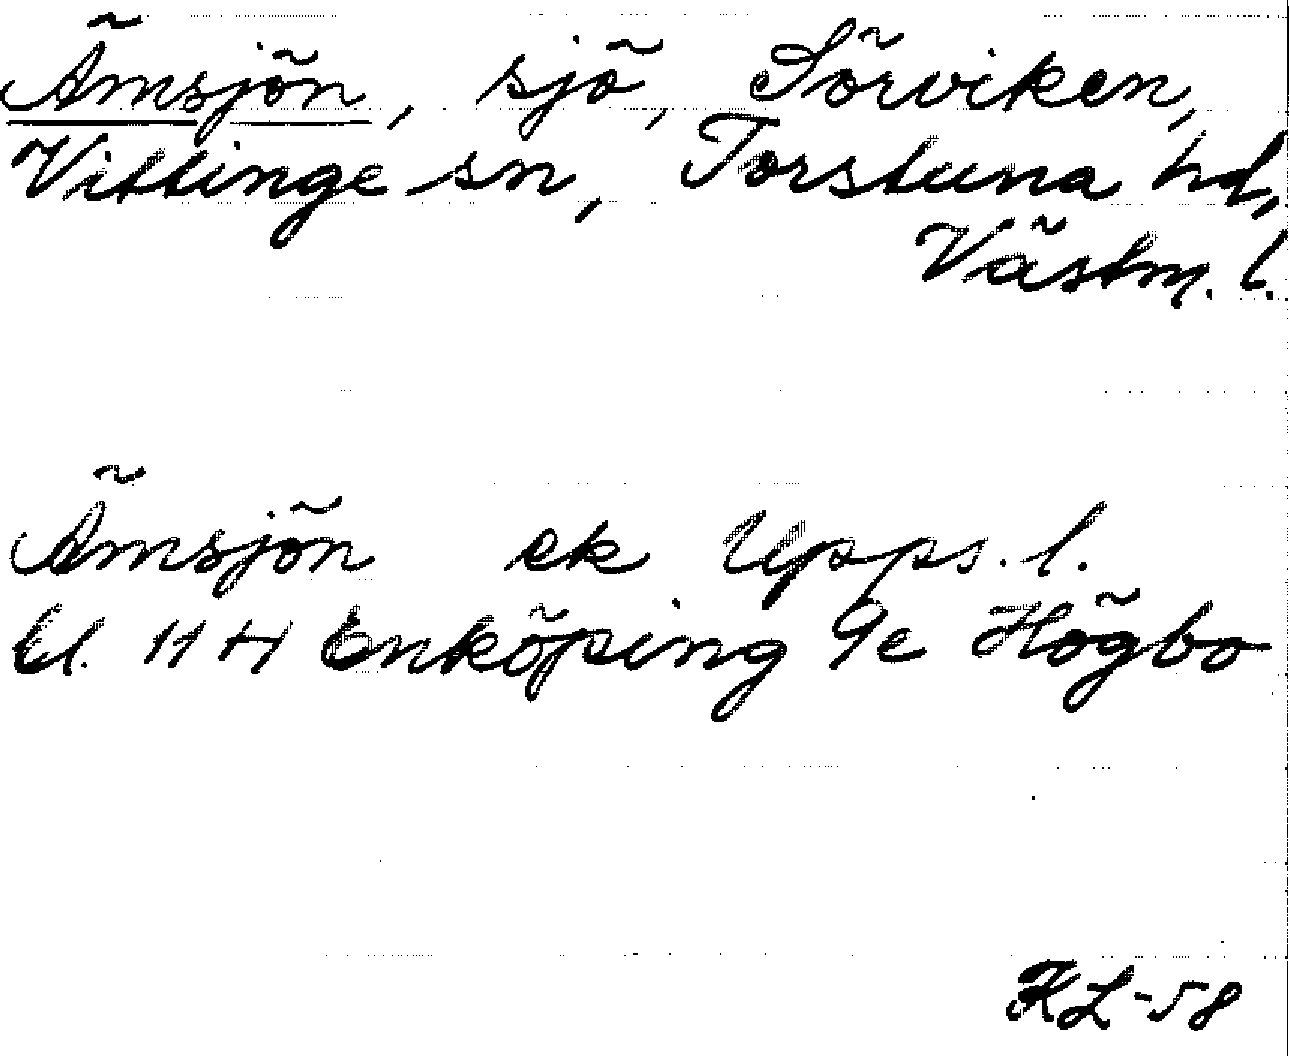 Ämsjön, sjö, Sörviken,
Vittinge sn, Torstuna hd,
Västm. l.
Ämsjön ek Upps. l.
Bl. 11 H Enköping 9e Högbo
KL-58